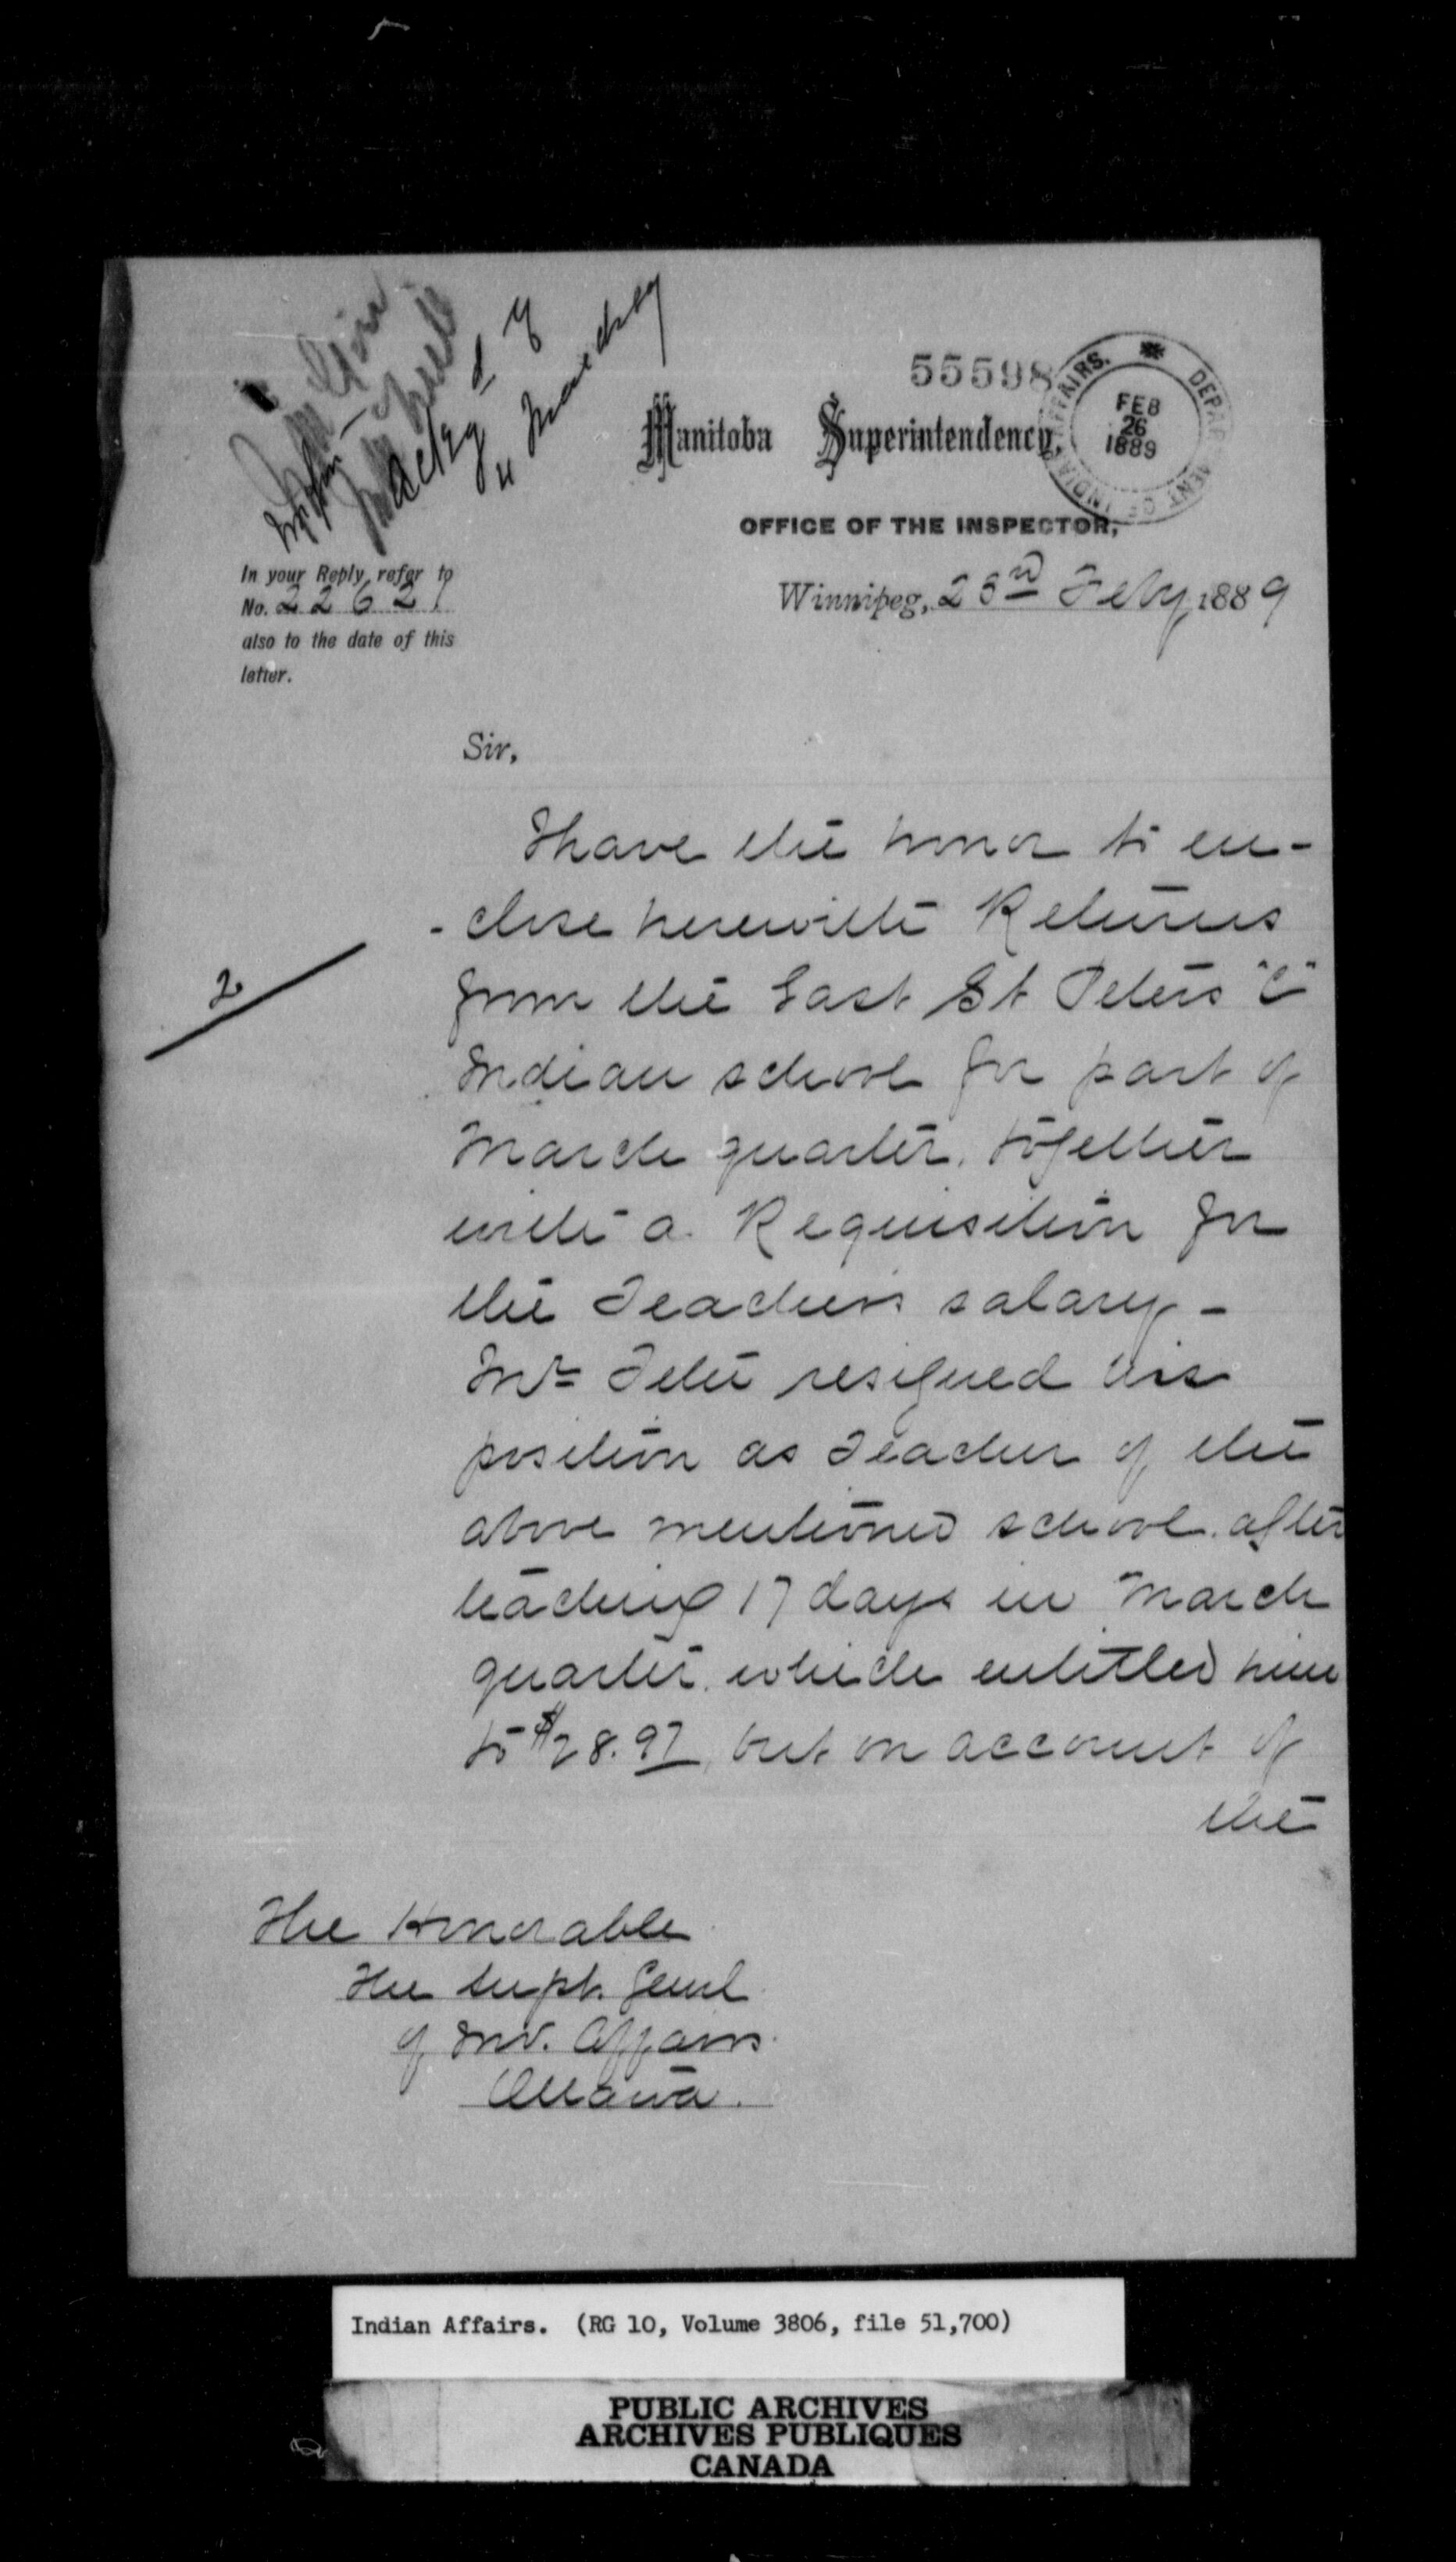 ack'g'd
4 March 89
55598
DEPARTMENT OF INDIAN AFFAIRS.
FEB
26
1889
Manitoba Superintendency,
OFFICE OF THE INSPECTOR,
In your Reply refer to
No. 22621
also to the date of this
letter.
Winnipeg, 23rd Feby 1889
Sir,
I have the honor to en-
-close herewith Returns
2
from the East St Peters "C"
Indian school for part of
March quarter, together
with a Requisition for
the Teachers salary -
Mr resigned his
position as Teacher of the
above mentioned school after
teaching 17 days in March
quarter, which entitled him
to $28.97, but on account of
the
The Honorable
The Supt. Genl
of Ind. Affairs
Ottawa.
Indian Affairs. (RG 10, Volume 3806, file 51,700)
PUBLIC ARCHIVES
ARCHIVES PUBLIQUES
CANADA